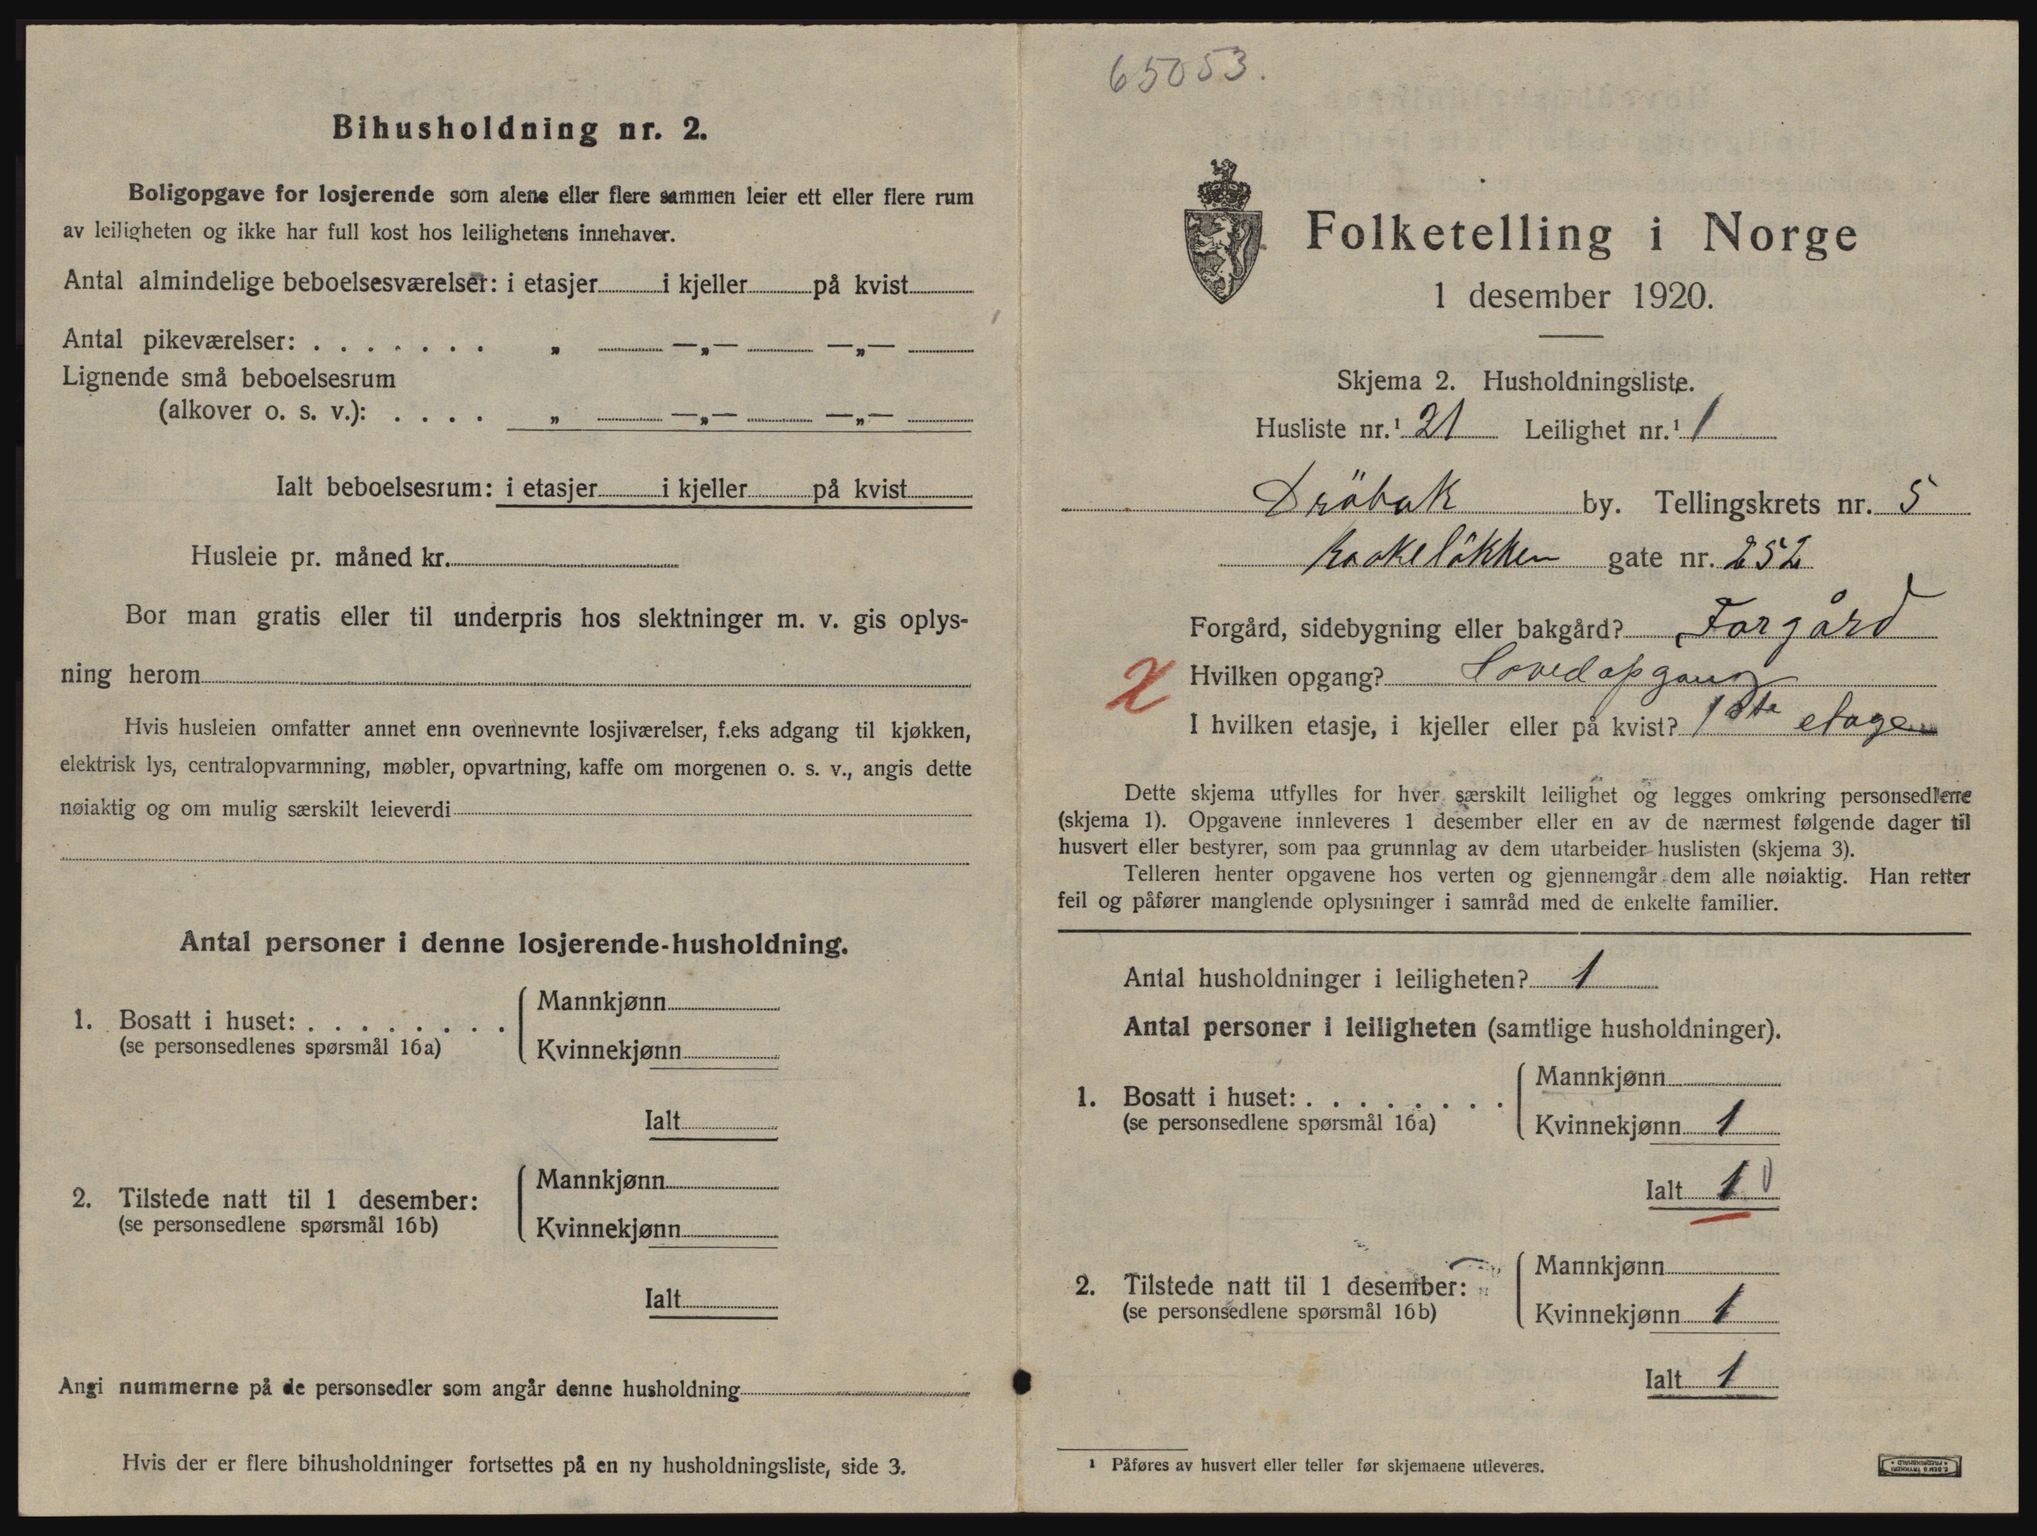 Bihusholdning nr. 2.
Boligopgave for losjerende som alene eller flere sammen leier ett eller flere rum
av leiligheten og ikke har full kost hos leilighetens innehaver.
Antal almindelige beboelsesværelser: i etasjer i kjeller på kvist
Antal pikeværelser: . . . . . . . „ —„— —„—
Lignende små beboelsesrum
(alkover o. s. v.): . . . . „ —„— —„—
Ialt beboelsesrum: i etasjer i kjeller på kvist
Husleie pr. måned kr.
Bor man gratis eller til underpris hos slektninger m. v. gis oplys-
ning herom
Hvis husleien omfatter annet enn ovennevnte losjiværelser, f.eks adgang til kjøkken,
elektrisk lys, centralopvarmning, møbler, opvartning, kaffe om morgenen o. s. v., angis dette
nøiaktig og om mulig særskilt leieverdi
Antal personer i denne losjerende-husholdning.
1. Bosatt i huset: . . . . . . . . Mannkjønn
(se personsedlenes spørsmål 16a) Kvinnekjønn
Ialt
2. Tilstede natt til 1 desember: Mannkjønn
(se personsedlene spørsmål 16b) Kvinnekjønn
Ialt
Angi nummerne på de personsedler som angår denne husholdning
Hvis der er flere bihusholdninger fortsettes på en ny husholdningsliste, side 3.
65053.
Folketelling i Norge
1 desember 1920.
Skjema 2. Husholdningsliste.
Husliste nr.¹ 21 Leilighet nr.¹ 1
Dröbak by. Tellingskrets nr. 5
gate nr. 252
Forgård, sidebygning eller bakgård? Forgård
Hvilken opgang? Hovedopgang
I hvilken etasje, i kjeller eller på kvist? 1ste etage
Dette skjema utfylles for hver særskilt leilighet og legges omkring personsedlene
(skjema 1). Opgavene innleveres 1 desember eller en av de nærmest følgende dager til
husvert eller bestyrer, som paa grunnlag av dem utarbeider huslisten (skjema 3).
Telleren henter opgavene hos verten og gjennemgår dem alle nøiaktig. Han retter
feil og påfører manglende oplysninger i samråd med de enkelte familier.
Antal husholdninger i leiligheten? 1
Antal personer i leiligheten (samtlige husholdninger).
1. Bosatt i huset: . . . . . . . . Mannkjønn
(se personsedlene spørsmål 16a) Kvinnekjønn 1
Ialt 1
2. Tilstede natt til 1 desember: Mannkjønn
(se personsedlene spørsmål 16b) Kvinnekjønn 1
Ialt 1
¹ Påføres av husvert eller teller før skjemaene utleveres.